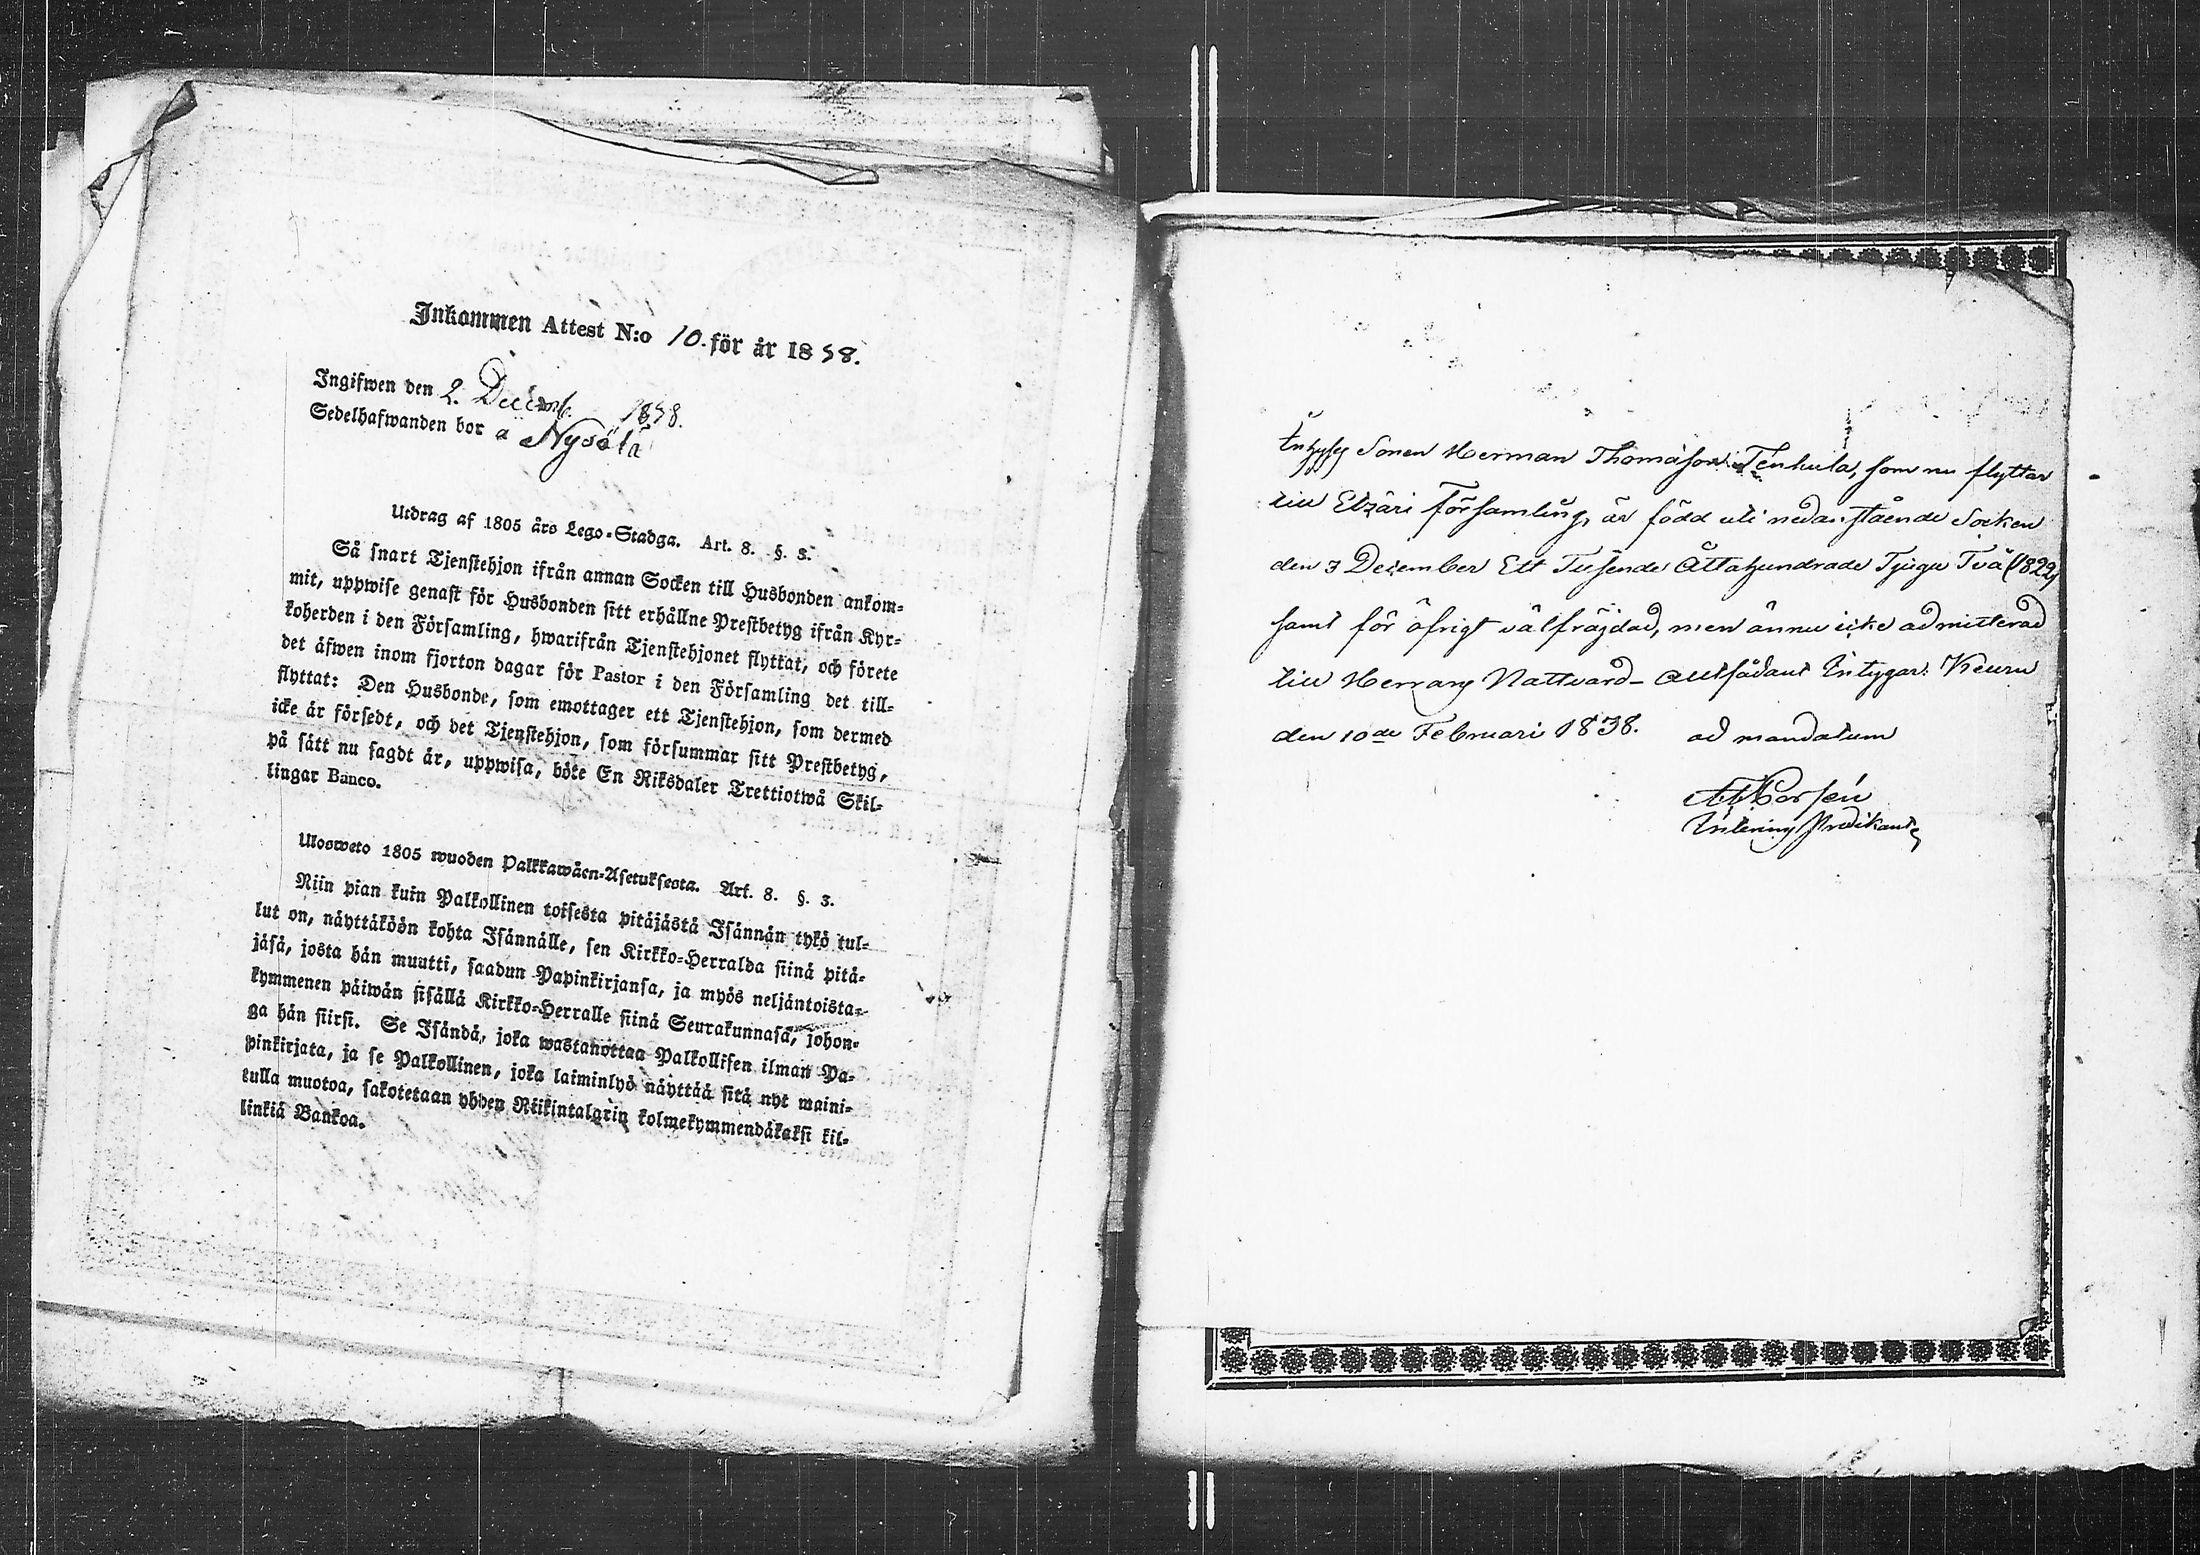 Inkommen Attest N:o 10. för år 1858.
Ingifwen den 2. Decemb. 1858.
Sedelhafwanden bor å Nysölä
Utdrag af 1805 års Lego-Stadga. Art. 8. §. 3.
Så snart Tjenstehjon ifrån annan Socken till Husbonden ankom-
mit, uppwise genast för Husbonden sitt erhållne Prestbetyg ifrån Kyr-
koherden i den Församling, hwarifrån Tjenstehjonet flyttat, och förete
det äfwen inom fjorton dagar för Pastor i den Församling det till-
flyttat: Den Husbonde, som emottager ett Tjenstehjon, som dermed
icke är försedt, och det Tjenstehjon, som försummar sitt Prestbetyg,
på sätt nu sagdt är, uppwisa, böte En Riksdaler Trettiotwå Skil-
lingar Banco.
Ulosweto 1805 wuoden Palkkawäen-Asetuksesta. Art. 8. §. 3.
Niin pian kuin Palkollinen toisesta pitäjästä Isännän tykö tul-
lut on, näyttäköön kohta Isännälle, sen Kirkko-Herralda siinä pitä-
jäsä, josta hän muutti, saadun Papinkirjansa, ja myös neljäntoista-
kymmenen päiwän sisällä Kirkko-Herralle siinä Seurakunnasa, johon-
ga hän siirsi. Se Isändä, joka wastanottaa Palkollisen ilman Pa-
pinkirjata, ja se Palkollinen, joka laiminlyö näyttää sitä nyt maini-
tulla muotoa, sakotetaan yhden Riikintalarin kolmekymmendäkaksi kil-
linkiä Bankoa.
Inhyses Sonen Herman Thomasson Tenhula, som nu flyttar
till Etzäri Församling, är född uti nedanstående Socken
den 7 December Ett Tusende Åttahundrade Tjugu Två (1822)
samt för öfrigt välfräjdad, men ännu icke admitterad
till Herrans Nattvard – Attsådant Intygar: Keuru
den 10de Februari 1838. ad mandatum
Interims Predikant